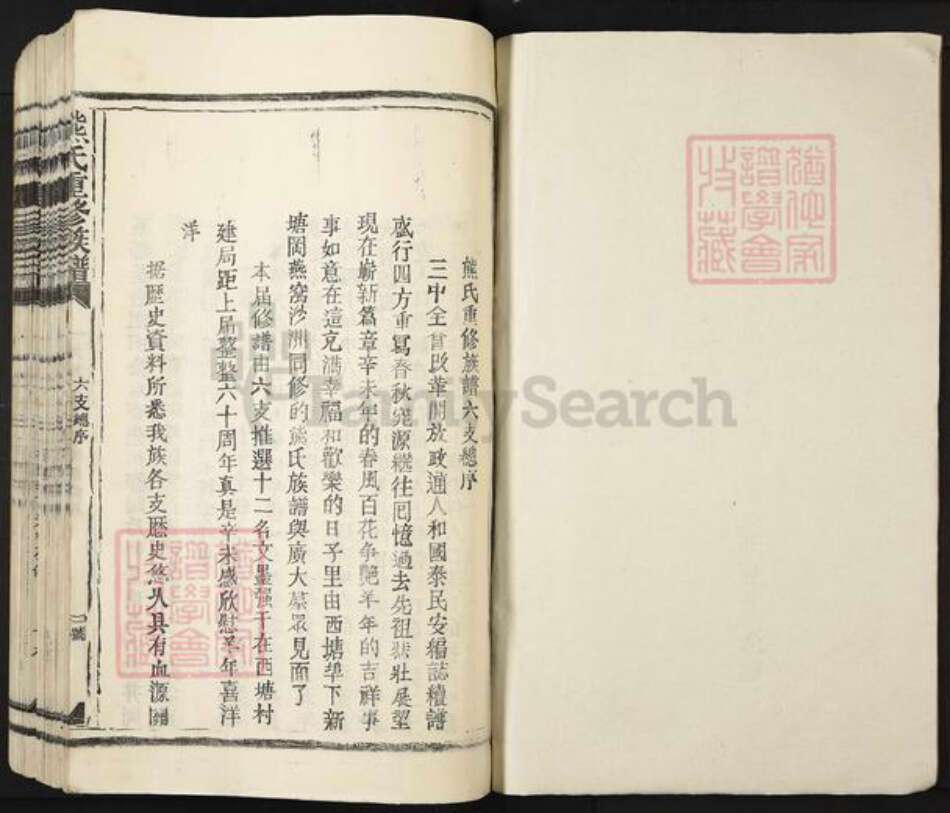 熊氏重修族譜六支總序
三中全會改革開放政通人和國泰民安編誌續譜
盛行四方重寫春秋窮源繼往囘憶過去先祖悲壯展望
現在嶄新篇章辛未年的春風百花争艷羊年的吉祥事
事如意在這充滿幸福和歡樂的日子里由西塘垏下新
塘岡燕窩沙洲同修的熊氏族譜與廣大羣眾見面了
本届修譜由六支推選十二名文墨强于在西塘村
建局距上届整整六十周年真是辛未感欣慰羊年喜洋
洋
据歷史資料所悉我族各支歷史悠久具有血源關
熊氏重修族譜
六支總序
一號
猶他家譜學會收藏
猶他家譜學會收藏
FamilySearch